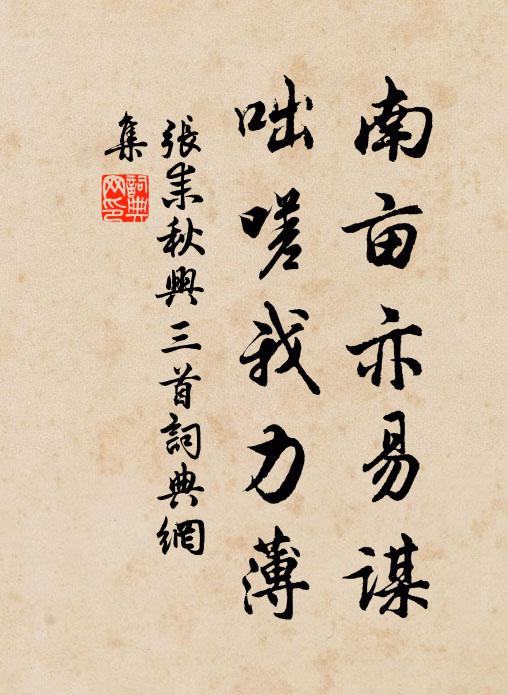 南亩亦易谋
咄嗟我力薄
張耒秋興三首詞典網
集
詞典
网印